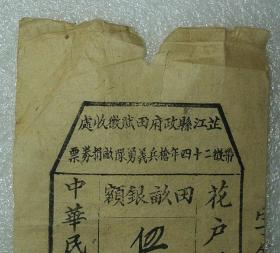 芷江縣政府田賦徵收處
帶徵二十四年拾兵義勇隊畝捐券票
花戶
田畝銀額
中華民